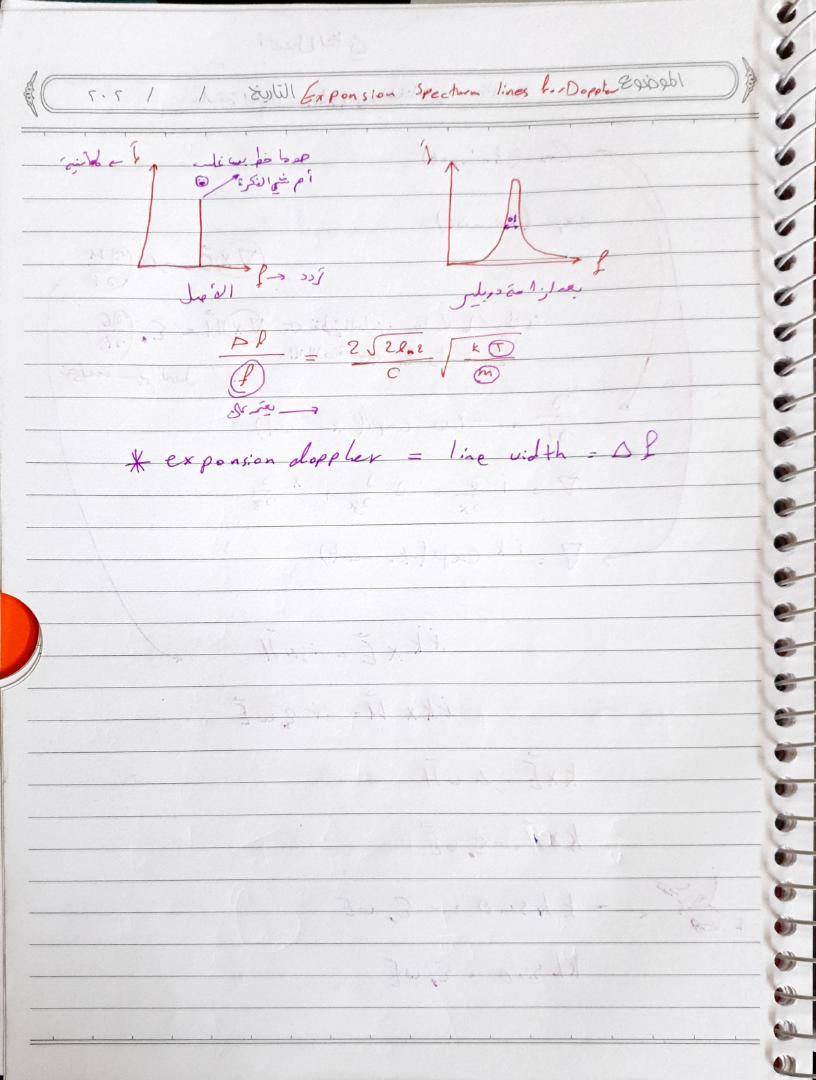 الموضوع Expansion Spectrum lines for Doppler التاريخ / / ٢٠٢
هو ما خط
أم شي الفكرة
I
I
f → تردد
f
الأصل
بعد ازاحة دوبلر
Δf / f = 2√2ln2 / c √ k T / m
يعتمد على →
* exponsion doppler = line width = Δf